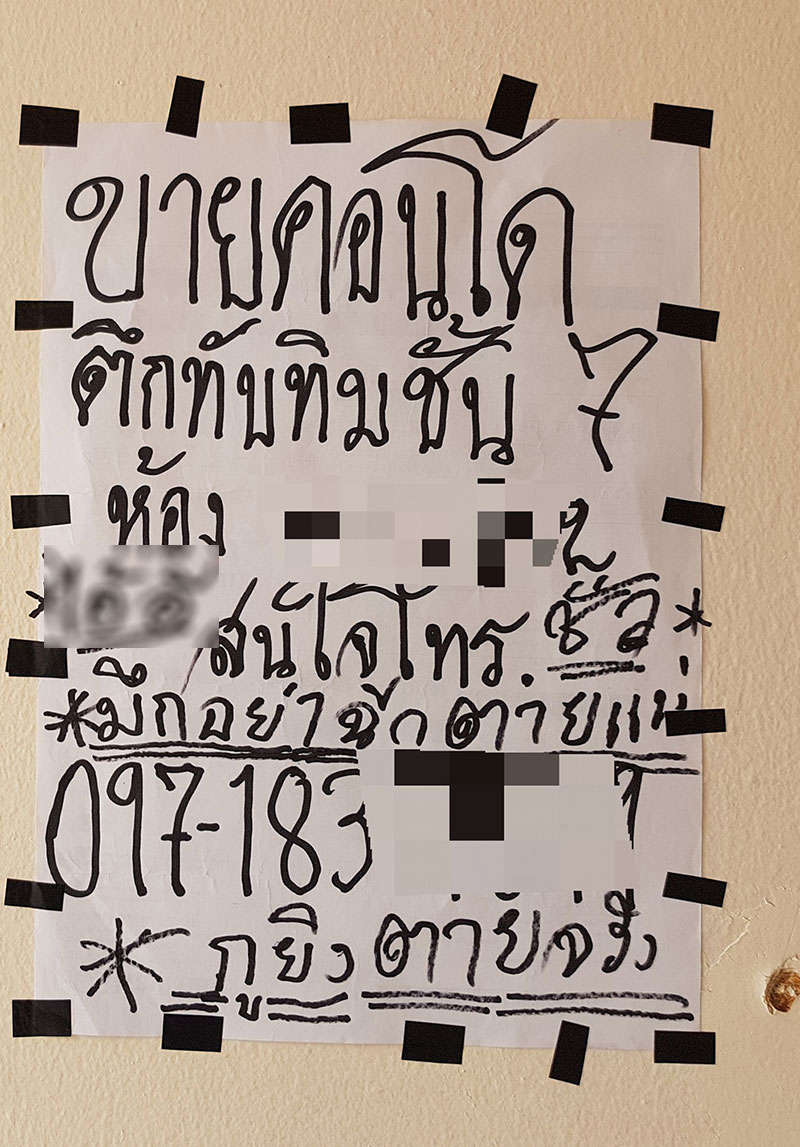 ขายคอนโด
ตึกทับทิมชั้น 7
ห้อง
สนใจโทร. ชัว *
*มึกอย่าฉีก ตายแน่
097-183
* กูยิง ตายจริง